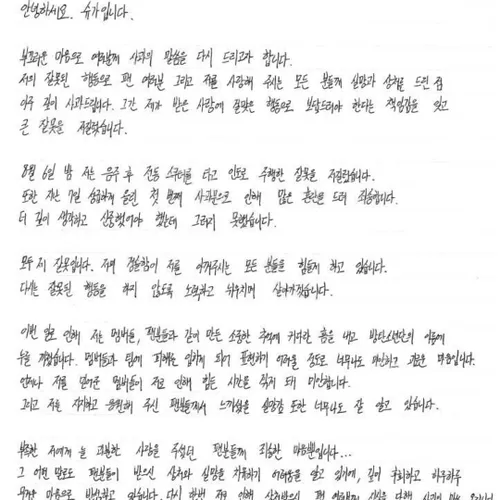 안녕하세요. 슈가입니다.
부끄러운 마음으로 여러분께 사과의 말씀을 다시 드리고자 합니다.
저의 잘못된 행동으로 팬 여러분 그리고 저를 사랑해 주시는 모든 분들께 실망과 상처를 드린 점
아주 깊이 사과드립니다. 그간 제가 받은 사랑에 걸맞은 행동으로 보답드려야 한다는 책임감을 잊고
큰 잘못을 저질렀습니다.
8월 6일 밤 저는 음주 후 전동 스쿠터를 타고 인도로 주행한 잘못을 저질렀습니다.
또한 지난 7일 성급하게 올린 첫 번째 사과문으로 인해 많은 혼란을 드려 죄송합니다.
더 깊이 생각하고 신중했어야 했는데 그러지 못했습니다.
모두 제 잘못입니다. 저의 경솔함이 저를 아껴주시는 모든 분들을 힘들게 하고 있습니다.
다시는 잘못된 행동을 하지 않도록 노력하고 뉘우치며 살아가겠습니다.
이번 일로 인해 저는 멤버들, 팬분들과 같이 만든 소중한 추억에 커다란 흠을 내고 방탄소년단의 이름에
누를 끼쳤습니다. 멤버들과 팀에 피해를 입히게 되어 표현하기 어려울 정도로 너무나도 미안하고 괴로운 마음입니다.
언제나 저를 믿어준 멤버들이 저로 인해 힘든 시간을 겪게 돼 미안합니다.
그리고 저를 지지하고 응원해 주신 팬분들께서 느끼셨을 실망감 또한 너무나도 잘 알고 있습니다.
부족한 저에게 늘 과분한 사랑을 주셨던 팬분들께 죄송한 마음뿐입니다...
그 어떤 말로도 팬분들이 받으신 상처와 실망을 치유하기 어려움을 알고 있기에, 깊이 후회하고 하루하루